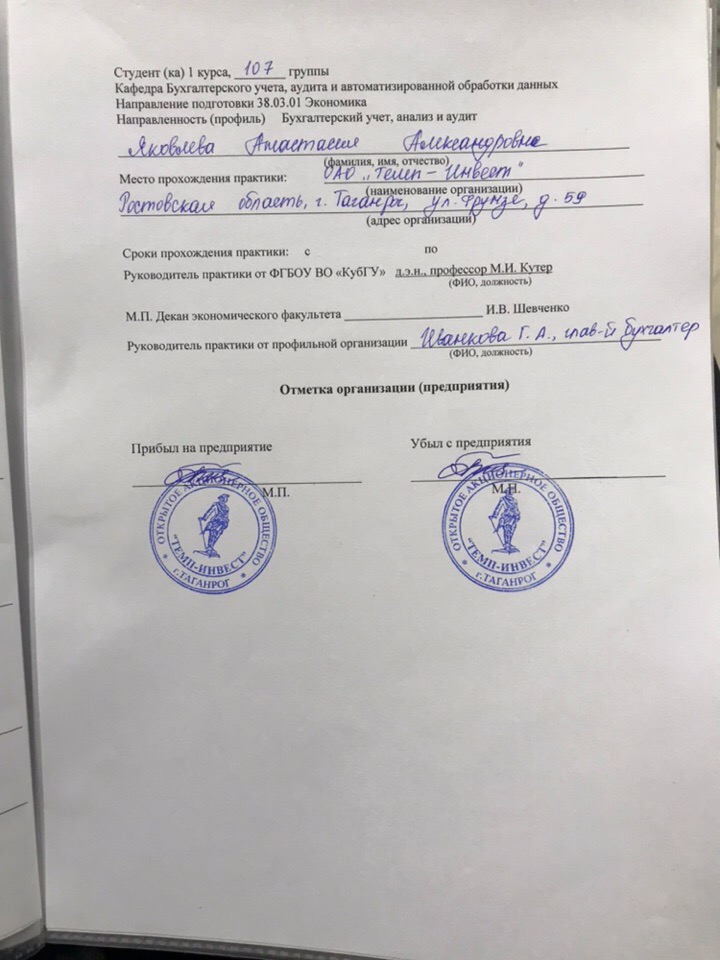 Студент (ка) 1 курса, 107 группы
Кафедра Бухгалтерского учета, аудита и автоматизированной обработки данных
Направление подготовки 38.03.01 Экономика
Направленность (профиль) Бухгалтерский учет, анализ и аудит
Яковлева Анастасия Александровна
(фамилия, имя, отчество)
Место прохождения практики: ОАО „Темп - Инвест"
(наименование организации)
Ростовская область, г. Таганрог, ул. Фрунзе, д. 59
(адрес организации)
Сроки прохождения практики: с по
Руководитель практики от ФГБОУ ВО «КубГУ» д.э.н., профессор М.И. Кутер
(ФИО, должность)
М.П. Декан экономического факультета И.В. Шевченко
Руководитель практики от профильной организации Иванкова Г. А., глав-й бухгалтер
(ФИО, должность)
Отметка организации (предприятия)
Прибыл на предприятие Убыл с предприятия
М.П. М.П.
ОТКРЫТОЕ АКЦИОНЕРНОЕ ОБЩЕСТВО
"ТЕМП-ИНВЕСТ"
* г.ТАГАНРОГ *
ОТКРЫТОЕ АКЦИОНЕРНОЕ ОБЩЕСТВО
"ТЕМП-ИНВЕСТ"
* г.ТАГАНРОГ *